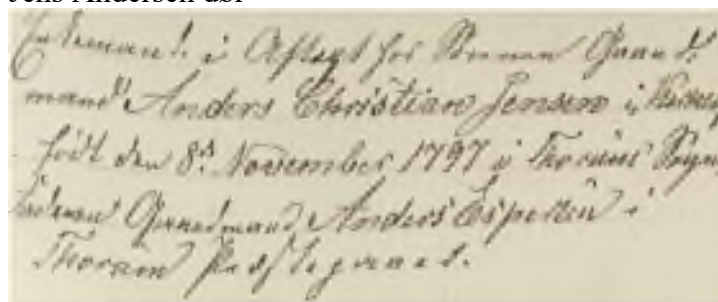 Enkemand i Aftægt hos Sønnen Gaard-
mand Anders Christian Jensen i
født den 8de November 1797 i Thorums Sogn
Gaardmand Anders Espersen i
Thorum